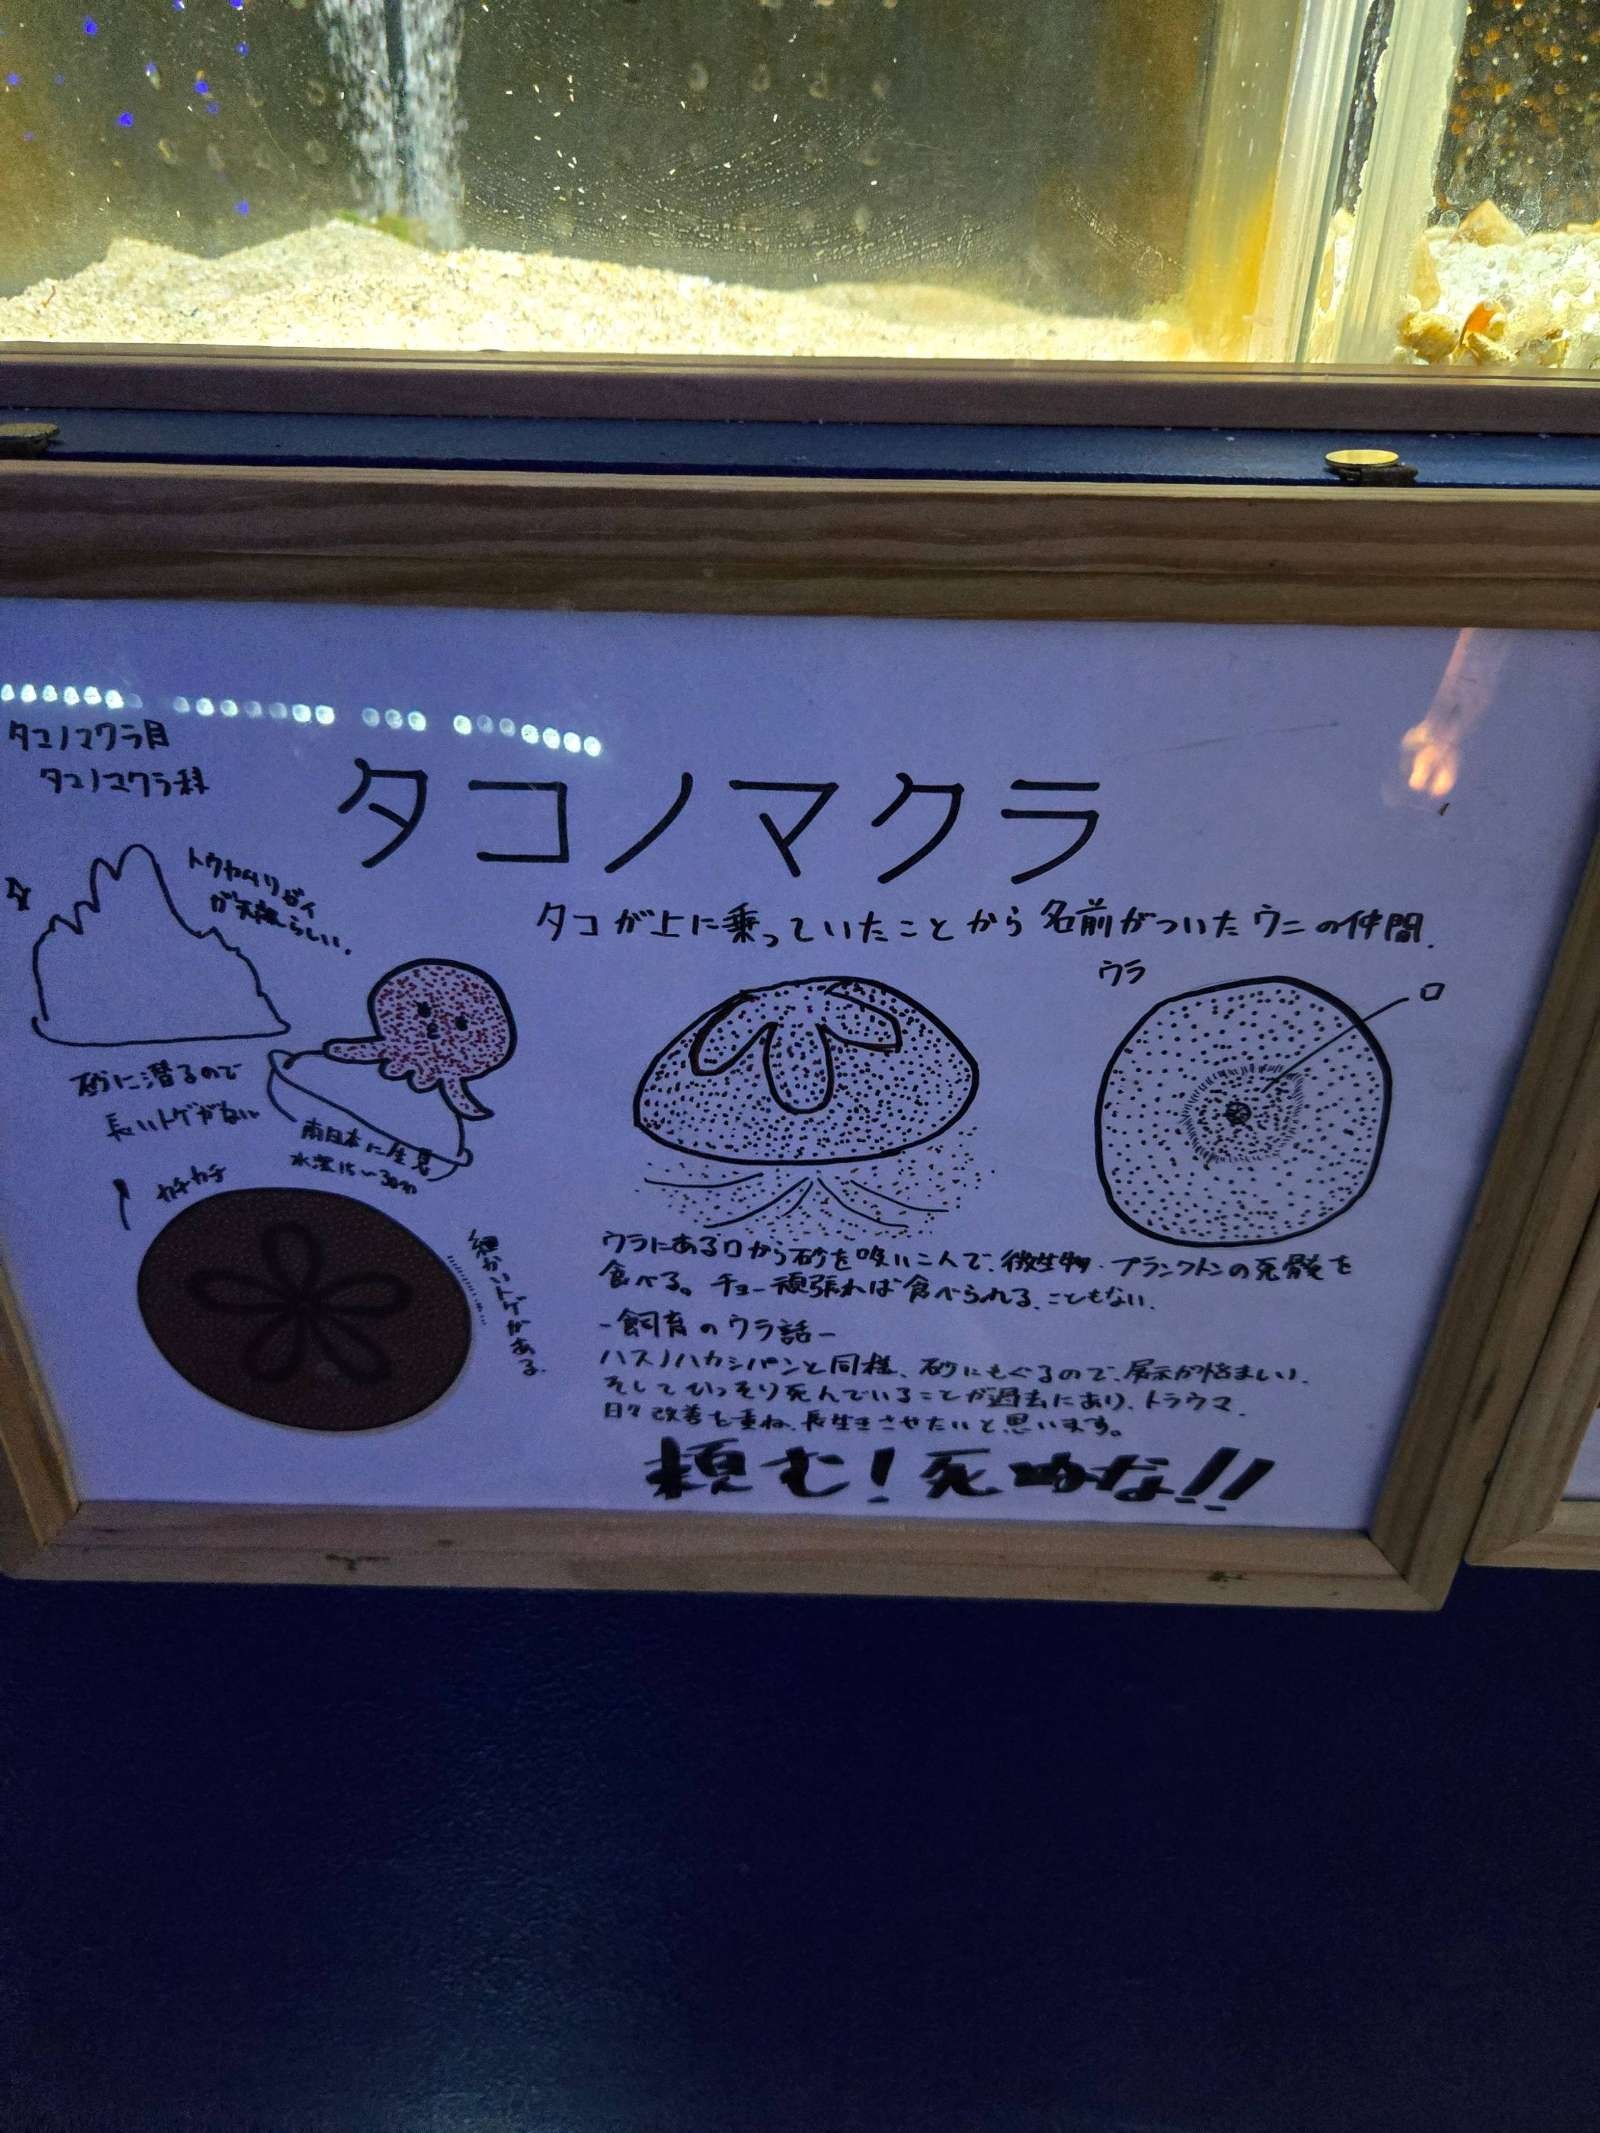 タコノマクラ目
タコノマクラ科
タコノマクラ
トウカムリガイ
が天敵らしい.
タコが上に乗っていたことから名前がついたウニの仲間.
ウラ
口
砂に潜るので
長いトゲがない
南日本に生息
カチカチ
細かいトゲがある.
ウラにある口から砂を吸いこんで、微生物・プランクトンの死骸を
食べる。チョー頑張れば食べられる、こともない.
-飼育のウラ話-
ハスノハカシパンと同様、砂にもぐるので、展示が悩ましい.
そしてひっそり死んでいることが過去にあり、トラウマ.
日々改善を重ね、長生きさせたいと思います。
頼む!死ぬな!!